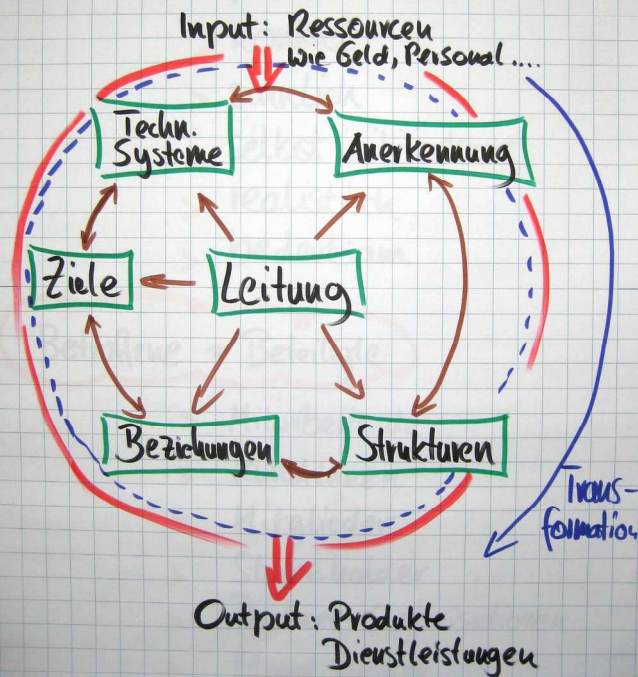 Input: Ressourcen
wie Geld, Personal ....
Techn.
Systeme
Anerkennung
Ziele
Leitung
Beziehungen
Strukturen
Trans-
formation
Output: Produkte
Dienstleistungen